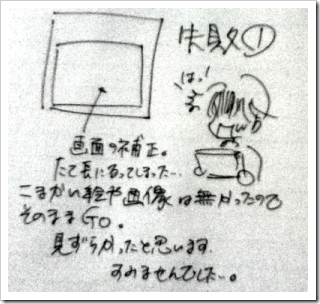 失敗①
はっ!
画面の補正。
たて長になってしまった…
こまかい絵や画像は無かったので
そのままGO。
見ずらかったと思います
すみませんでした…。